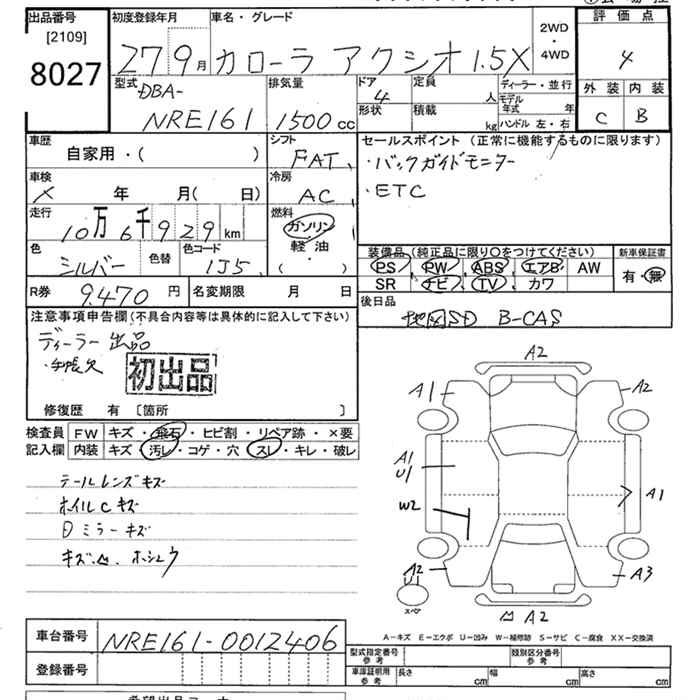 出品番号
[2109]
8027
初度登録年月
27 9月
車名・グレード
カローラ アクシオ 1.5X
2WD
・
4WD
評価点
4
外装 内装
C B
型式
DBA-
NRE161
排気量
1500 cc
ドア
4
定員
人
形状
積載
kg
ディーラー・並行
モデル
年式 年
ハンドル 左・右
車歴
自家用・( )
シフト
FAT
セールスポイント (正常に機能するものに限ります)
・バックガイドモニター
・ETC
車検
× 年 月( 日)
冷房
AC
走行
10万 6千 9 2 9 km
燃料
ガソリン
軽・油
・( )
色
シルバー
色替
色コード
1J5
装備品 (純正品に限り〇をつけてください)
PS PW ABS エアB AW
SR ナビ TV カワ
新車保証書
有・無
R券 9,470 円
名変期限 月 日
後日品
地図SD B-CAS
注意事項申告欄 (不具合内容等は具体的に記入して下さい)
ディーラー出品
・手帳欠
初出品
修復歴 有 〔箇所 〕
検査員
記入欄
FW キズ・飛石・ヒビ割・リペア跡・×要
内装 キズ・汚レ・コゲ・穴・スレ・キレ・破レ
テールレンズキズ
ホイルCキズ
Dミラーキズ
A2
A1
A2
A1
U1
A1
W2
A2
U1
A3
スペア
A2
A-キズ E-エクボ U-凹み W-補修跡 S-サビ C-腐食 XX-交換済
車台番号 NRE161-0012406
登録番号
型式指定番号
参考
類別区分番号
参考
車庫証明用
参考
長さ cm
幅 cm
高さ cm